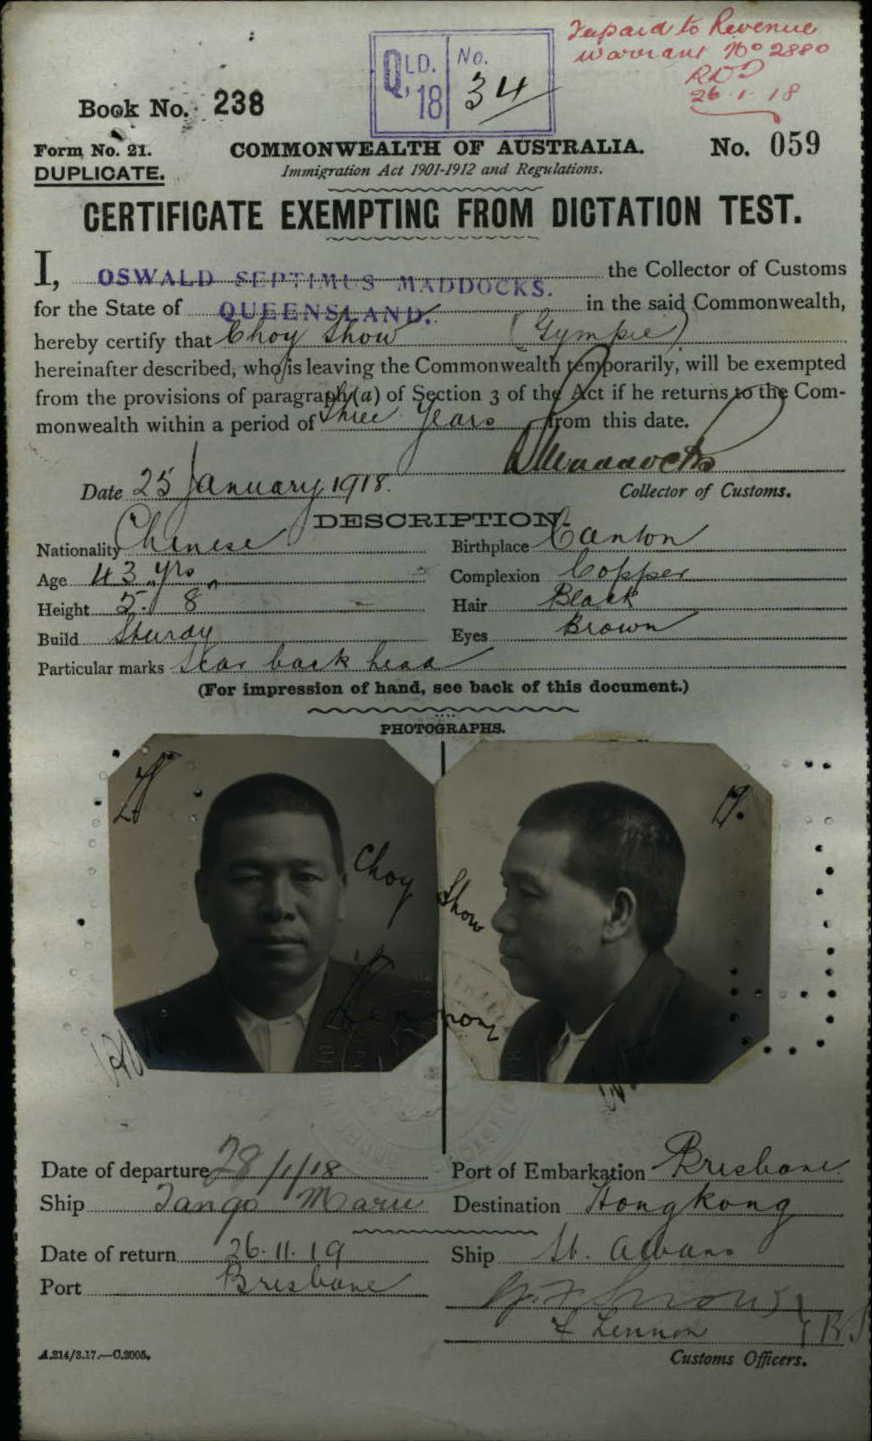 £1 paid to Revenue
warrant No 2880
26.1.18
QLD. No.
'18 34
Book No. 238
Form No. 21. COMMONWEALTH OF AUSTRALIA. No. 059
DUPLICATE. Immigration Act 1901-1912 and Regulations.
CERTIFICATE EXEMPTING FROM DICTATION TEST.
I, OSWALD SEPTIMUS MADDOCKS. the Collector of Customs
for the State of QUEENSLAND. in the said Commonwealth,
hereby certify that Choy Show (Gympie)
hereinafter described, who is leaving the Commonwealth temporarily, will be exempted
from the provisions of paragraph (a) of Section 3 of the Act if he returns to the Com-
monwealth within a period of three years from this date.
Maddocks
Date 25 January 1918. Collector of Customs.
DESCRIPTION.
Nationality Chinese Birthplace Canton
Age 43 yrs Complexion Copper
Height 5' 8" Hair Black
Build Sturdy Eyes Brown
Particular marks Scar back head
(For impression of hand, see back of this document.)
PHOTOGRAPHS.
Choy Show
Date of departure 28/1/18 Port of Embarkation Brisbane
Ship Tango Maru Destination Hongkong
Date of return 26.11.19 Ship St. Albans
Port Brisbane
L Lennon
A.214/3.17.—C.2005. Customs Officers.